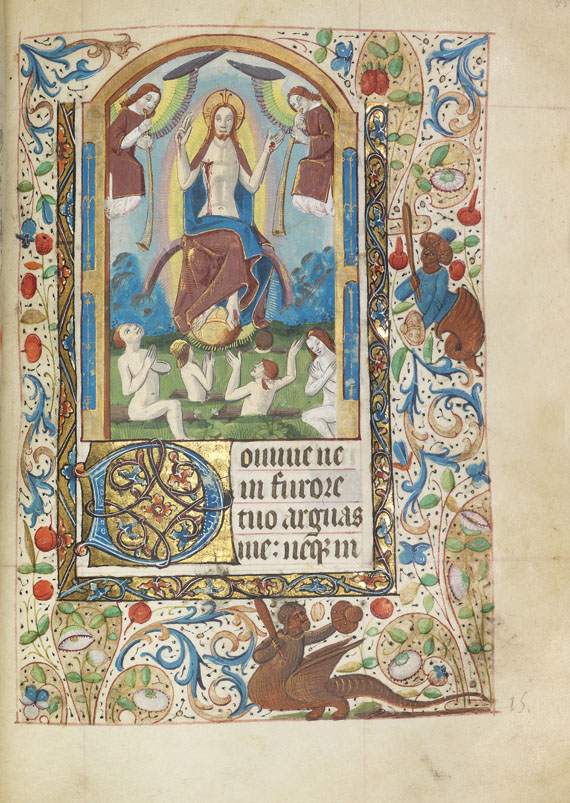 Domine ne
in furore
tuo arguas
me: neqꝫ in
15.